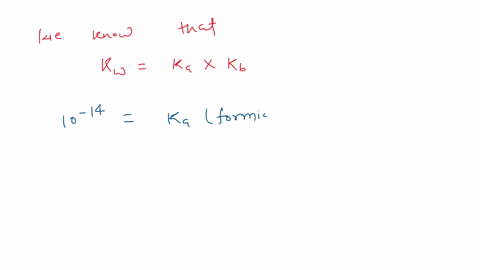 We know that
Kw = Ka x Kb
10⁻¹⁴ = Ka (formic